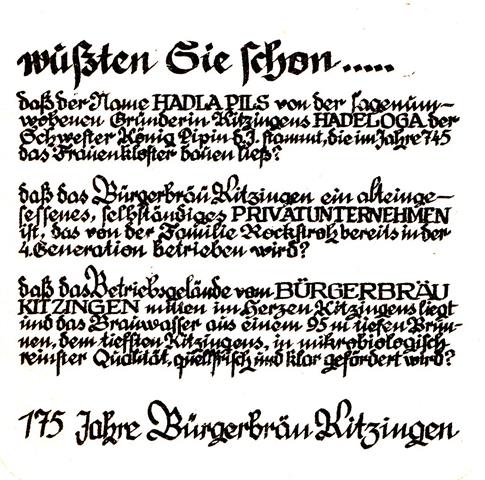 wüßten Sie schon.....
daß der Name HADLA PILS von der sagenum-
wobenen Gründerin Kitzingens HADELOGA der
Schwester König Pipin d.J. stammt, die im Jahre 745
das Frauenkloster bauen ließ?
daß das Bürgerbräu Kitzingen ein alteinge-
sessenes, selbständiges PRIVATUNTERNEHMEN
ist, das von der Familie Rockstroh bereits in der
4. Generation betrieben wird?
daß das Betriebsgelände vom BÜRGERBRÄU
KITZINGEN mitten im Herzen Kitzingens liegt
und das Brauwasser aus einem 95 m tiefen Brun-
nen, dem tiefsten Kitzingens, in mikrobiologisch
reinster Qualität, quellfrisch und klar gefördert wird?
175 Jahre Bürgerbräu Kitzingen